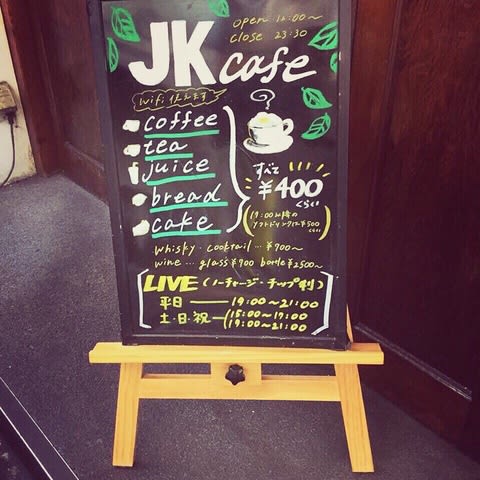 open 12:00〜
close 23:30
JK cafe
wifi使えます
coffee
tea
juice
bread
cake
すべて
¥400
くらい
19:00以降の
ソフトドリンクは¥500
くらい
whisky・cocktail…¥700〜
wine…glass¥700 bottle¥2500〜
LIVE(ノーチャージ・チップ制)
平日 19:00〜21:00
土・日・祝 15:00〜17:00
19:00〜21:00